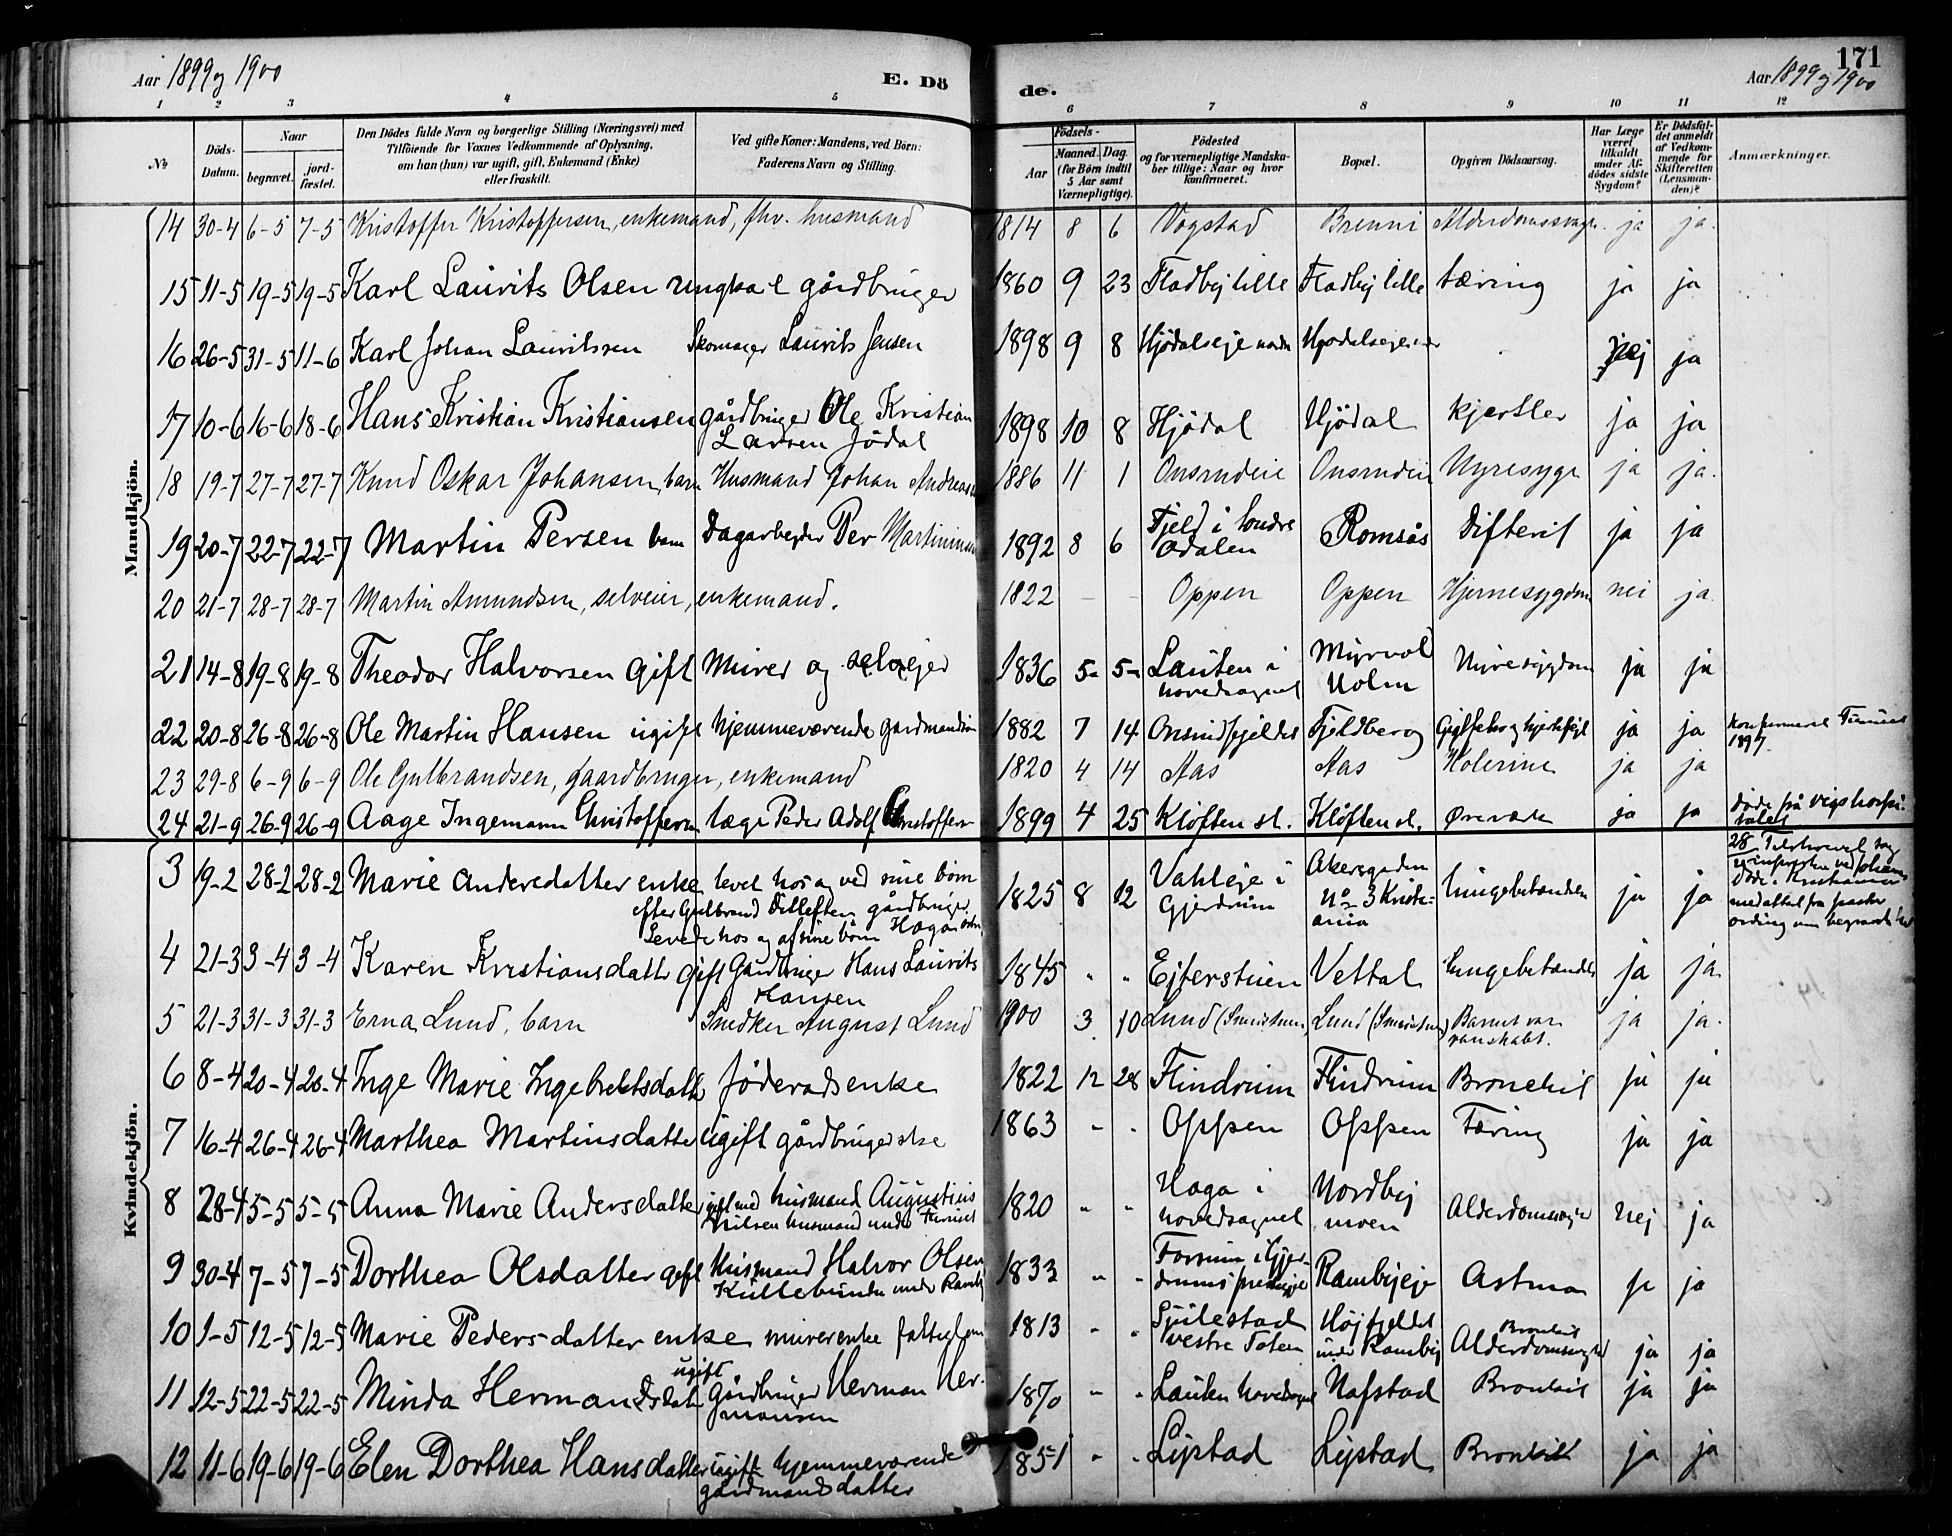 171
Aar 1899 og 1900
E. Dö
de.
Aar 1899 og 1900
1 2 3 4 5 6 7 8 9 10 11 12
№
Döds-Datum.
Naar
begravet.
jord-fæstet.
Den Dödes fulde Navn og borgerlige Stilling (Næringsvei) med
Tilföiende for Voxnes Vedkommende af Oplysning,
om han (hun) var ugift, gift, Enkemand (Enke)
eller fraskilt.
Ved gifte Koner: Mandens, ved Börn:
Faderens Navn og Stilling.
Födsels-
Aar
Maaned. Dag.
(for Börn indtil
5 Aar samt
Værnepligtige).
Födested
og for værnepligtige Mandska-
ber tillige: Naar og hvor
konfirmeret.
Bopæl.
Opgiven Dödsaarsag.
Har Læge
været
tilkaldt
under Af-
dödes sidste
Sygdom?
Er Dödsfal-
det anmeldt
af Vedkom-
mende for
Skifteretten
(Lensman-
den)?
Anmærkninger.
Mandkjön.
14 30-4 6-5 7-5 Kristoffer Kristoffersen, enkemand, fhv. husmand 1814 8 6 Vogstad Brenni ja ja.
15 11-5 19-5 19-5 Karl Laurits Olsen ungkarl gårdbruger 1860 9 23 Fladbylille Fladbylille tæring ja ja
16 26-5 31-5 11-6 Karl Johan Lauritssen Skomager Laurits Jensen 1898 9 8 Hjödalseje nej ja
17 10-6 16-6 18-6 Hans Kristian Kristiansen gårdbruger Ole Kristian
Larsen Jödal 1898 10 8 Hjödal Hjödal kjertler ja ja
18 19-7 27-7 27-7 Knud Oskar Johansen, barn Husmand Johan 1886 11 1 Onsrudeie Onsrudeie Nyresyge ja ja.
19 20-7 22-7 22-7 Martin Persen barn Dagarbejder Per Martininsen 1892 8 6 Fjeld i Söndre
Odalen Romsås Difterit ja ja
20 21-7 28-7 28-7 Martin Amundsen, selveier, enkemand. 1822 - - Oppen Oppen Hjernesygdom nei ja.
21 14-8 19-8 19-8 Theodor Halvorsen gift Murer og selvejer 1836 5 5 Lauten i
hovedsognet Myrvold
Holm Nyresygdom ja ja
22 20-8 26-8 26-8 Ole Martin Hansen ugift hjemmeværende gårdmandssön 1882 7 14 Fjeldberg Gigtfeber og hjertefejl ja ja konfirmeret
1897
23 29-8 6-9 6-9 Ole Gulbrandsen, gaardbruger, enkemand 1820 4 14 Aas Aas Kolerine ja ja
24 21-9 26-9 26-9 Aage Ingemann Christoffersen læge Peder Adolf Christoffersen 1899 4 25 Klöften st. Klöften st. ja ja döde på Rigshospi-
talet
Kvindekjön.
3 19-2 28-2 28-2 Marie Andersdatter enke levet hos og ved sine börn
efter Gulbrand Ditleftsen gårdbruger
1825 8 12 Vahleje i
Gjerdrum Akersgaden
No 3 Kristi-
ania lungebetændelse ja ja
Levede hos og af sine börn
4 21-3 3-4 3-4 Karen Kristiansdatter gift Gårdbruger Hans Laurits
Hansen 1845 " " Ejterstuen Vettal lungebetændelse ja ja
5 21-3 31-3 31-3 Erna Lund, barn Snedker August Lund 1900 3 10 Lund Lund Barnet var
vanskabt. ja ja.
6 8-4 20-4 20-4 Inge Marie Ingebretsdatter föderådsenke 1822 12 28 Flindrum Flindrum Bronchit ja ja
7 16-4 26-4 26-4 Marthea Martinsdatter ugift gårdbrugerske 1863 " " Oppen Oppen Tæring ja ja
8 28-4 5-5 5-5 Anna Marie Andersdatter gift med husmand Augustius
Nilsen husmand under 1820 " " Haga i
hovedsognet Nordby
moen Alderdomssyge nej ja
9 30-4 7-5 7-5 Dorthea Olsdatter gift Husmand Halvor Olsen
Kullebunden under Ramby 1833 " " Rambyeje Astma ja ja
10 1-5 12-5 12-5 Marie Pedersdatter enke murerenke fattiglem 1813 " "
vestre Toten Höjfjeldet
under Ramby Bronkit
Alderdomssvaghed ja ja
11 12-5 22-5 22-5 Minda Hermansdatter ugift Gårdbruger Herman Her-
mansen 1870 " " Lauten hovedsognet Nafstad Bronkit ja ja
12 11-6 19-6 19-6 Elen Dorthea Hansdatter ugift hjemmeværende
gårdmandsdatter 1851 " " Lystad Lystad Bronkit ja ja